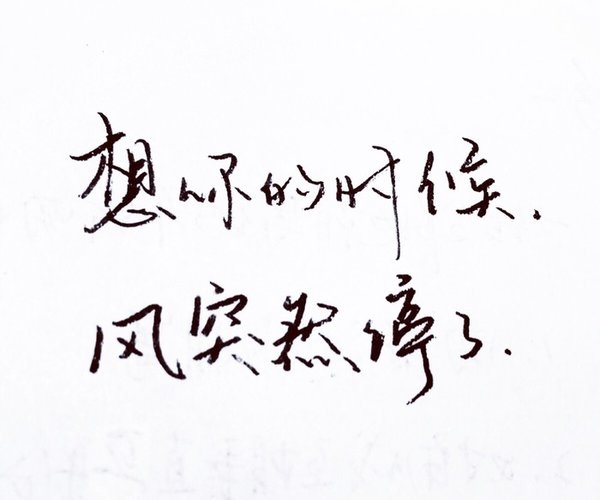 想你的时候.
风突然停了.